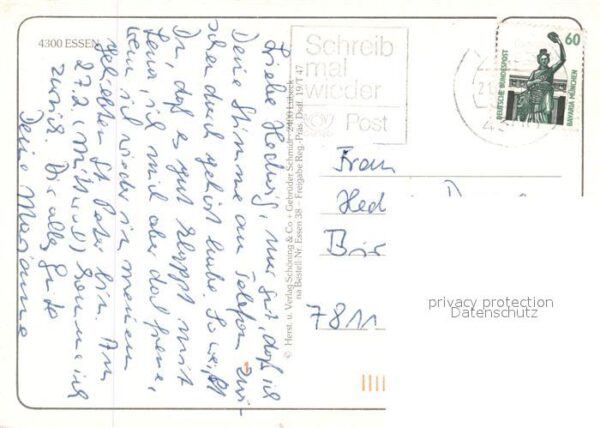 4300 ESSEN
Liebe Hedwig, nur gut, daß ich
Deine Stimme am Telefon zwi-
schen durch gehört habe. So weißt
Du, daß es gut klappt mit
Lena, ich mich aber doch freue,
wenn ich wieder in meinem
geliebten St. Peter bin. Am
27.2. (Mittwoch) komme ich
zurück. Dir alles Gute
Deine Marianne
© Herst. u. Verlag Schöning & Co + Gebrüder Schmidt · 2400 Lübeck
na Bestell-Nr. Essen 38 – Freigabe Reg.-Präs. Dsdf. 19/T 47
Schreib
mal
wieder
Post
60
DEUTSCHE BUNDESPOST
BAVARIA MÜNCHEN
Frau
Hed
Bir
7811
privacy protection
Datenschutz